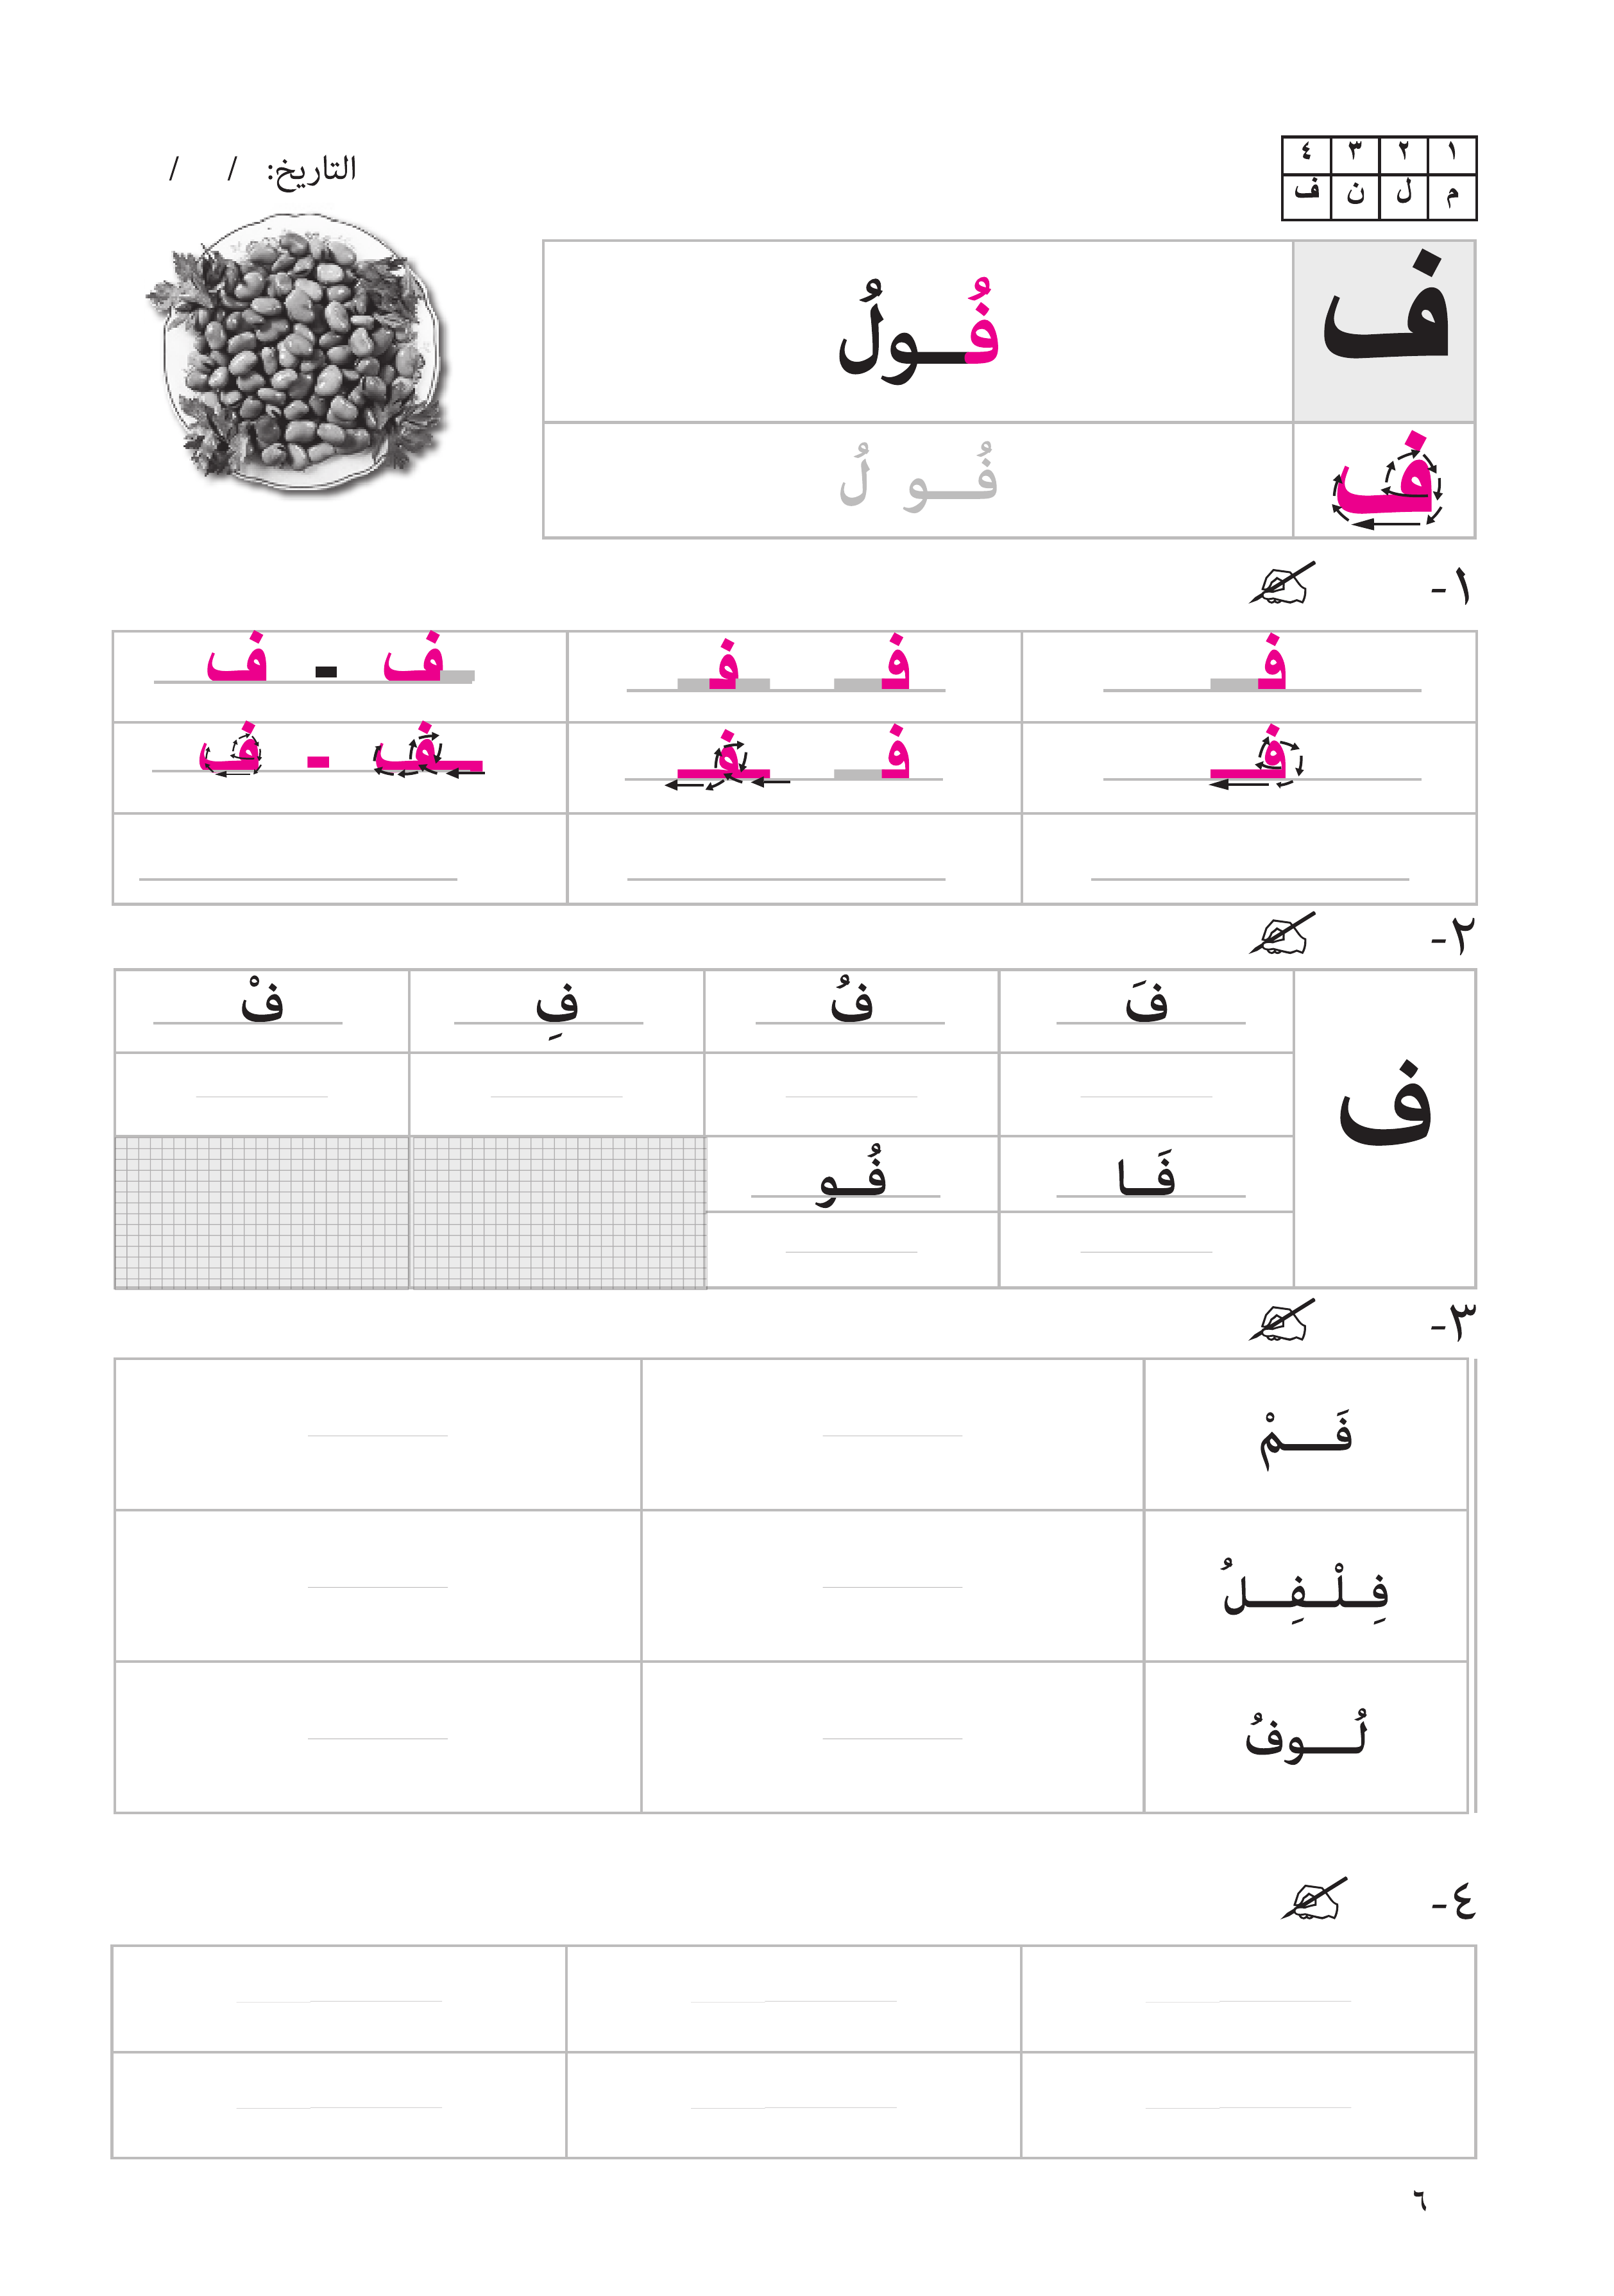 التاريخ: / /
١ ٢ ٣ ٤
م ل ن ف
ف فُـولُ
ف فُـو لُ
١-
فـ فـ ـفـ ـف - ف
فـ فـ ـفـ ـف - ف
٢-
ف
فَ فُ فِ فْ
فَـا فُـو
٣-
فَـــمْ
فِـــلْـــفِـــلُ
لُـــوفُ
٤-
٦